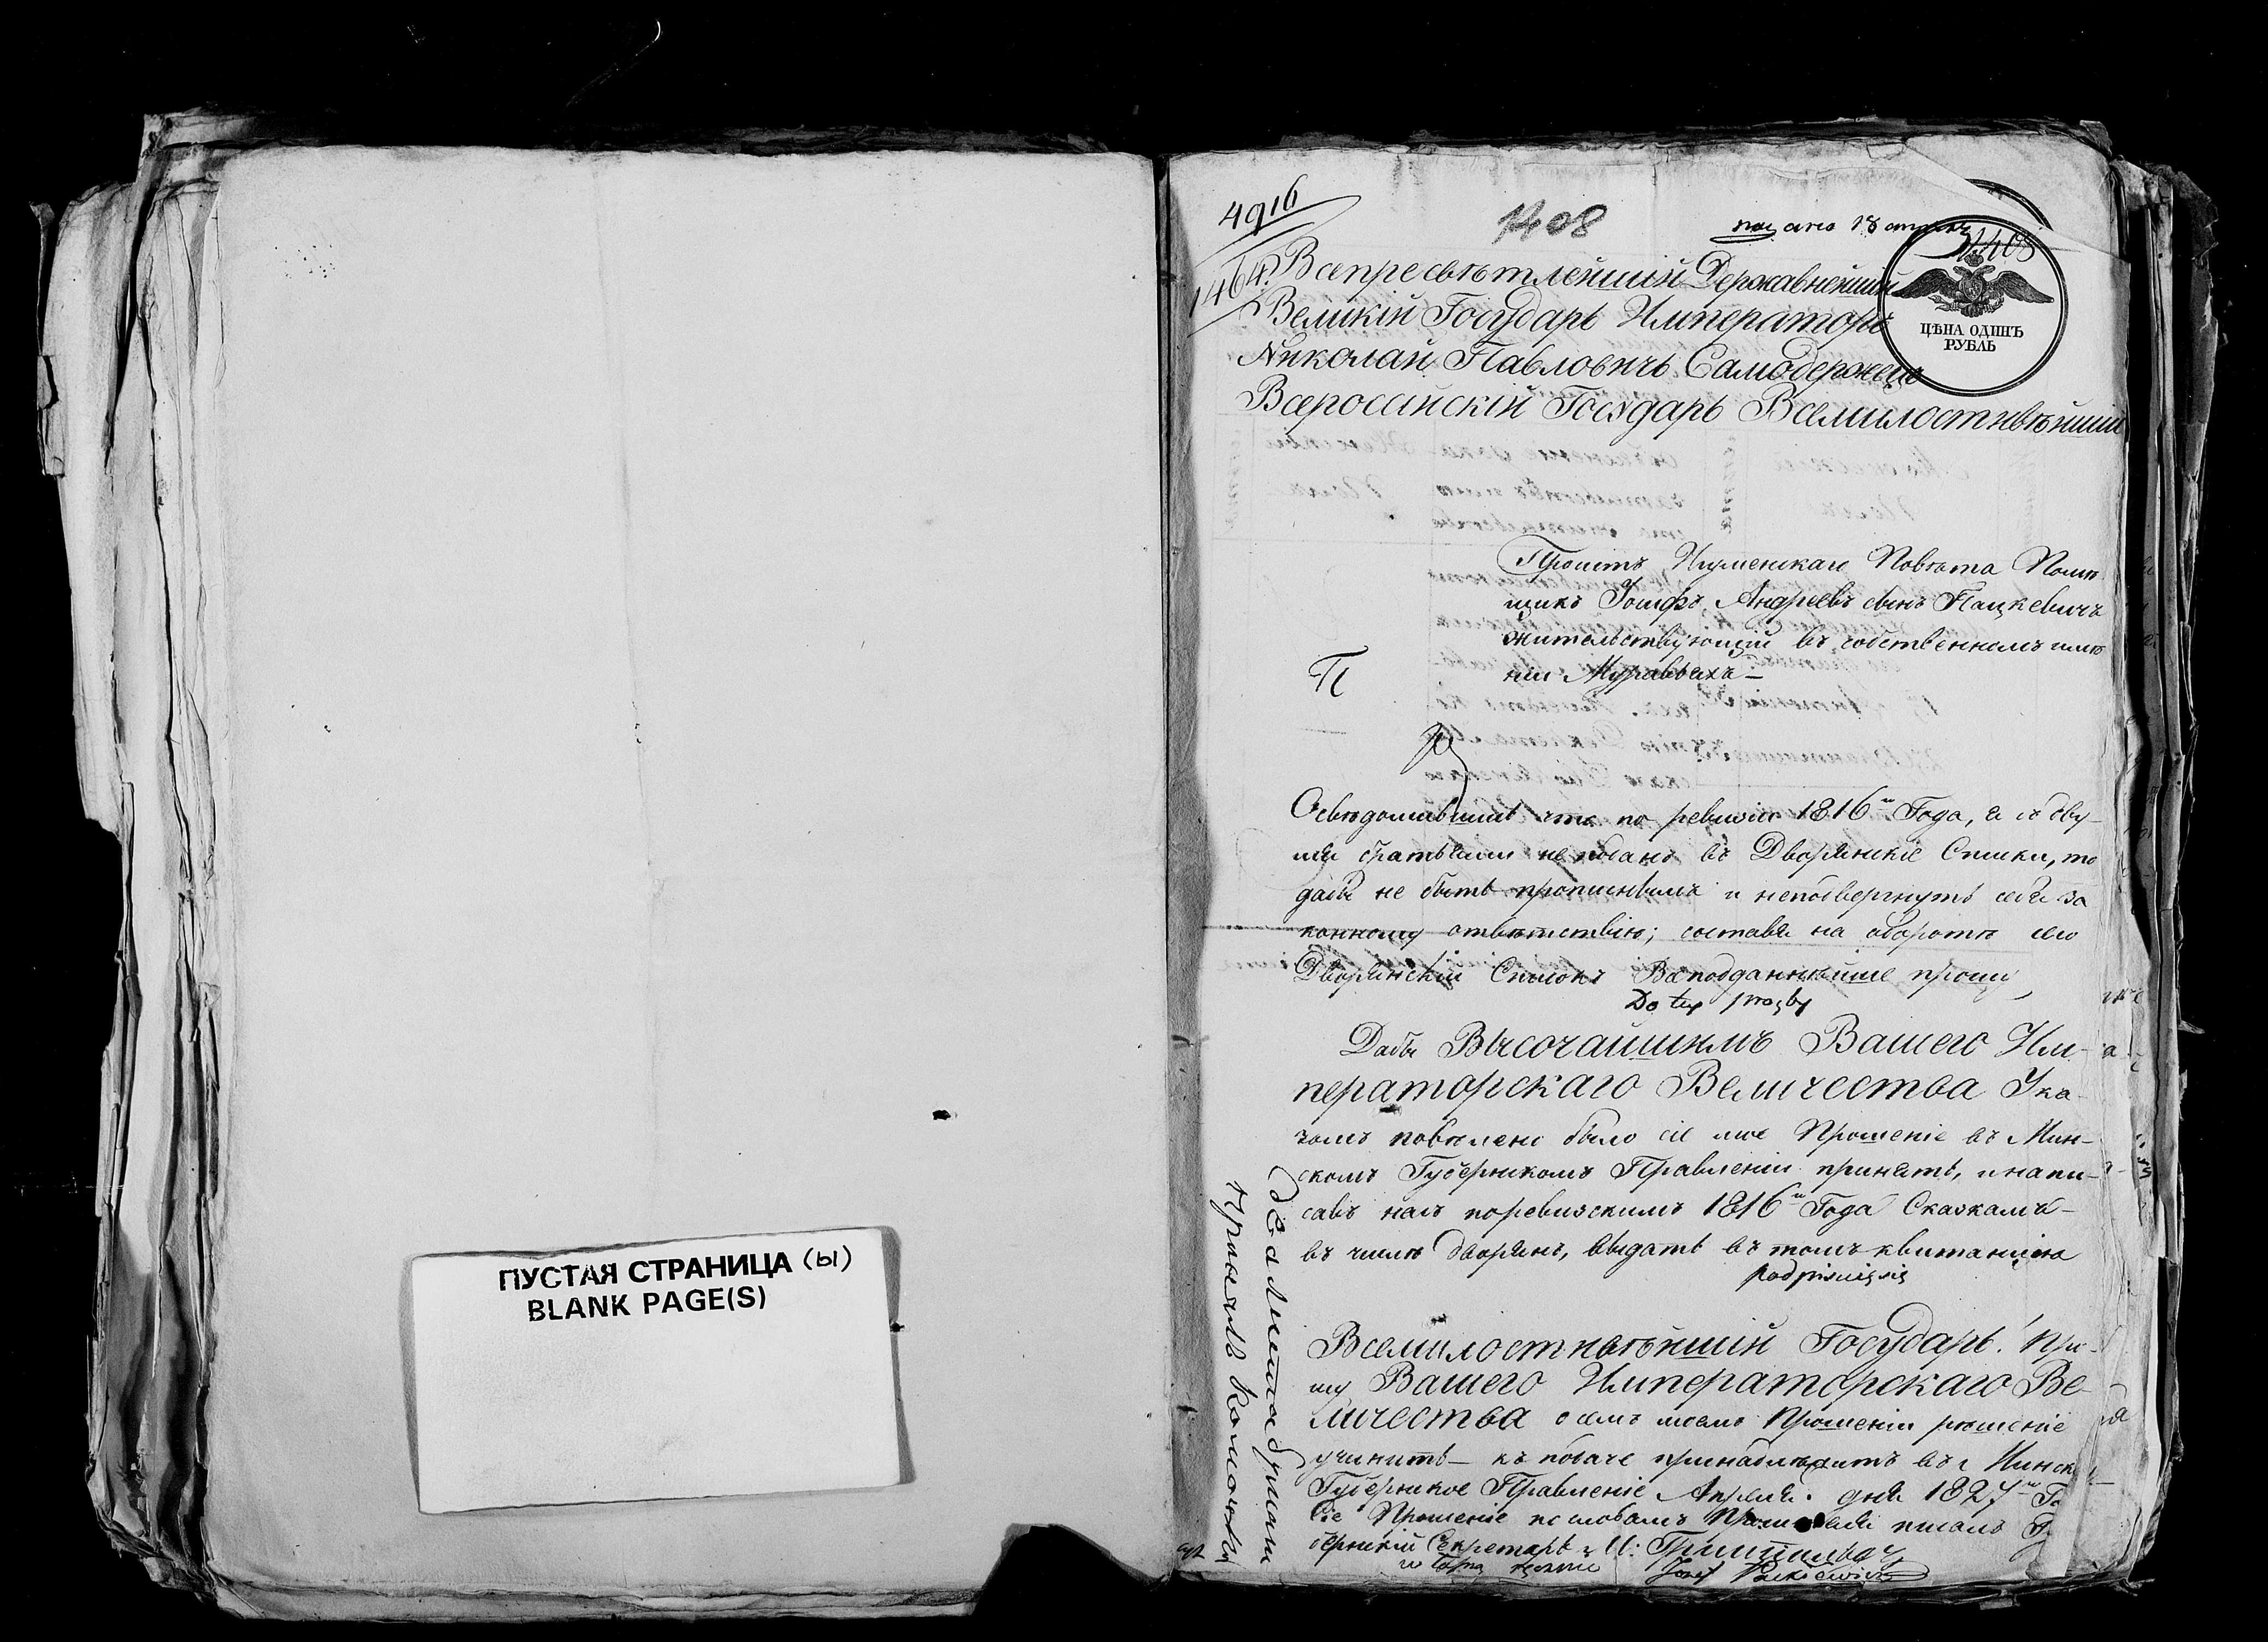 ПУСТАЯ СТРАНИЦА (ы)
BLANK PAGE(S)
4916
1464.
1408
подано 18 апрѣля
1408
ЦѢНА ОДИНЪ
РУБЛЬ
Всепресвѣтлейшій Державнейшій
Великій Государь Императоръ
Николай Павловичь Самодержецъ
Всеросійскій Государь Всемилостивѣйшій
Проситъ Игуменскаго Повѣта Помѣ
щикъ Іосифъ Андреевъ сынъ Пацкевичъ
жительствующій въ собственномъ имѣ
ніи Муравьяхъ
П
Осведомившись что по ревизіи 1816го Года, я съ дву-
мя братьями не поданъ въ Дворянскіе Списки, то
дабы не быть прописнымъ и неподвергнуть себя за
конному отвѣтствію; составя на оборотѣ сего
Дворянскій Списокъ Всеподданнѣйше прошу
Do tey prozby
Дабы Высочайшимъ Вашего Им-
ператорскаго Величества Ука-
зомъ повѣлено было сіе мое Прошеніе въ Мин-
скомъ Губернскомъ Правленіи принять, и напи-
савъ насъ поревизскимъ 1816го Года Сказкамъ
въ числѣ дворянъ, выдать въ томъ квитанцію
podpisuię się
Всемилостивѣйшій Государь! Про-
шу Вашего Императорскаго Ве-
личества о семъ моемъ Прошеніи рѣшеніе
учинить к подаче принадлѣжитъ въ Минск
Губернское Правленіе Апреля дня 1827го Го
Сіе Прошеніе со словамъ Просителя писалъ Гу
бернскій Секретарь
Józef Packiewicz